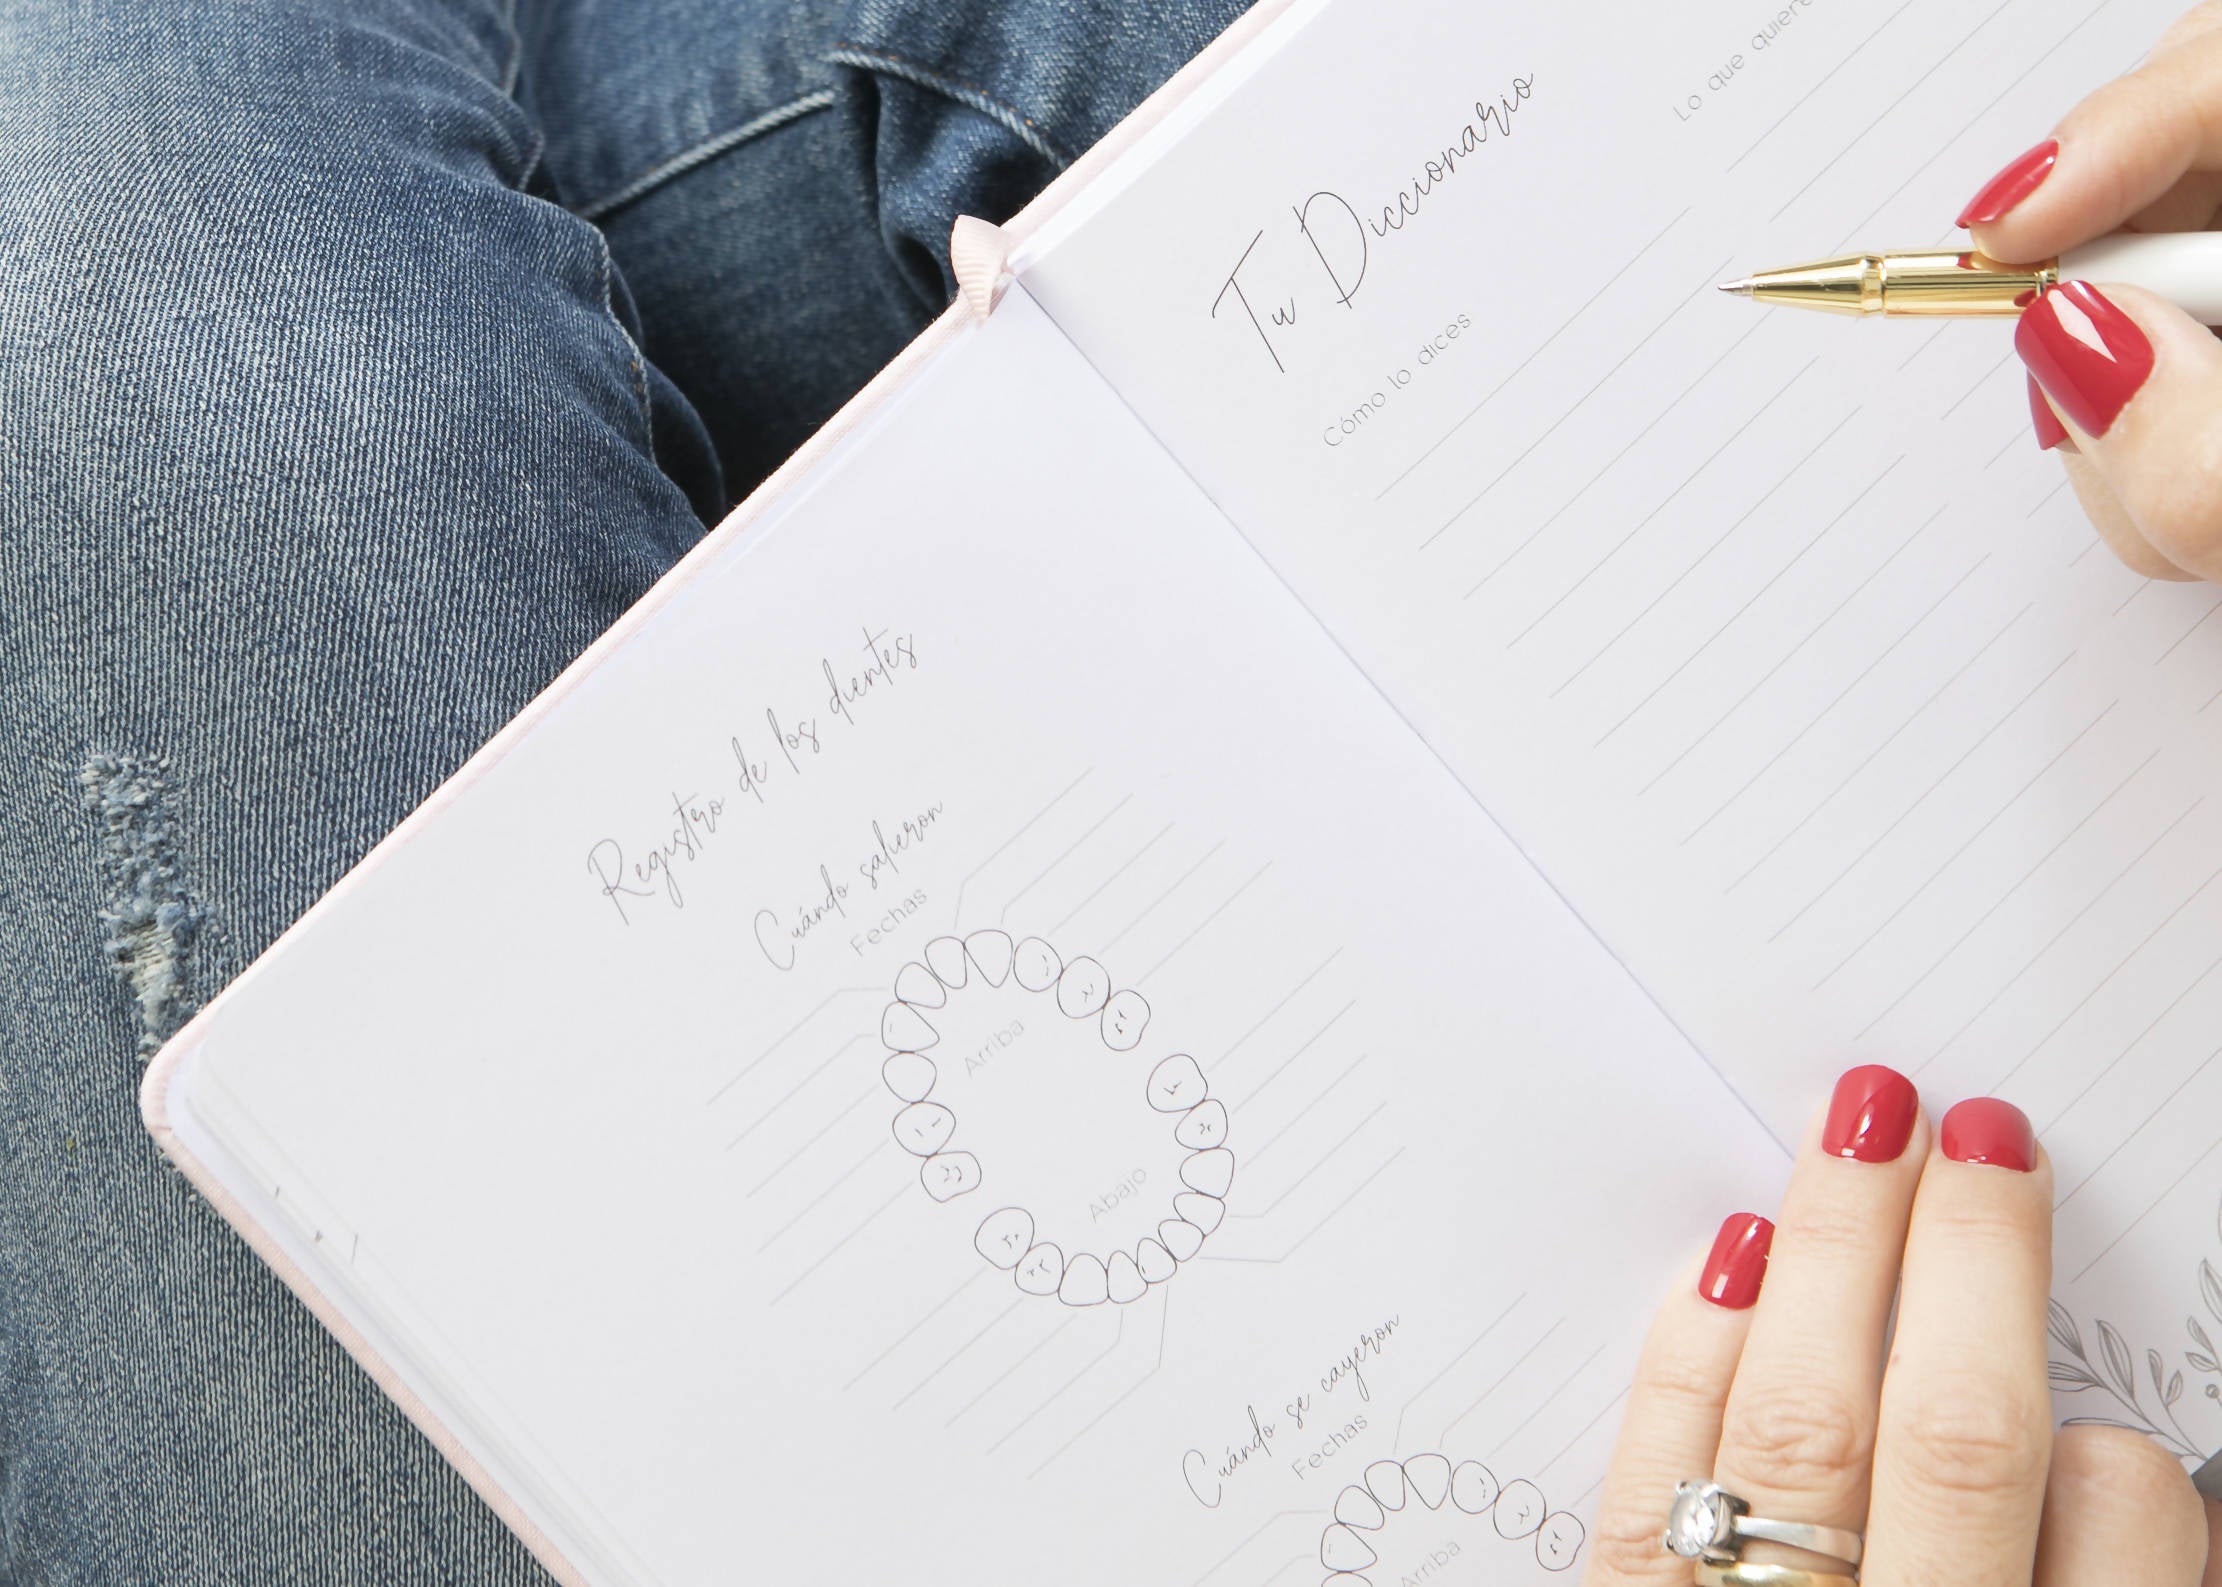 Registro de los dientes
Cuándo salieron
Fechas
Arriba
Abajo
Cuándo se cayeron
Fechas
Arriba
Tu Diccionario
Cómo lo dices
Lo que quiere